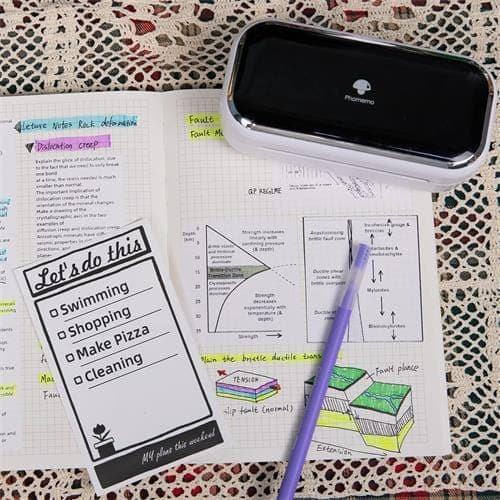 Lecture Notes Rock deformation
Dislocation creep
Explain the glice of dislocation, due
to the fact that we need to only break
one bond
at a time, the stress needed is much
smaller than normal.
The important implication of
dislocation creep is that the
orientation of the mineral changes.
Make a drawing of the
crystallographic axis in the two
examples of
diffusion creep and dislocation creep
Anisotropic minerals have
seismic properties in
Let's do this
Swimming
Shopping
Make Pizza
Cleaning
My plans this weekend
Fault
Fault
Phomemo
Depth [km]
0
5
10
15
20
25
30
35
Strength increases
linearly with
confining pressure
(& depth)
Brittle elastic
and frictional
processes
dominate
Brittle-Ductile
Transition Zone
Crystalplastic
processes
dominate
Strength
decreases
exponentially with
temperature
(& depth)
Strength
Anastomosing
brittle fault zone
Ductile shear
zones with
brittle overprint
Ductile shear
zones
Incohesive gouge &
breccias
Mylonites
Blastomylonites
the brittle ductile
TENSION
slip fault (normal)
Fault plane
Extension